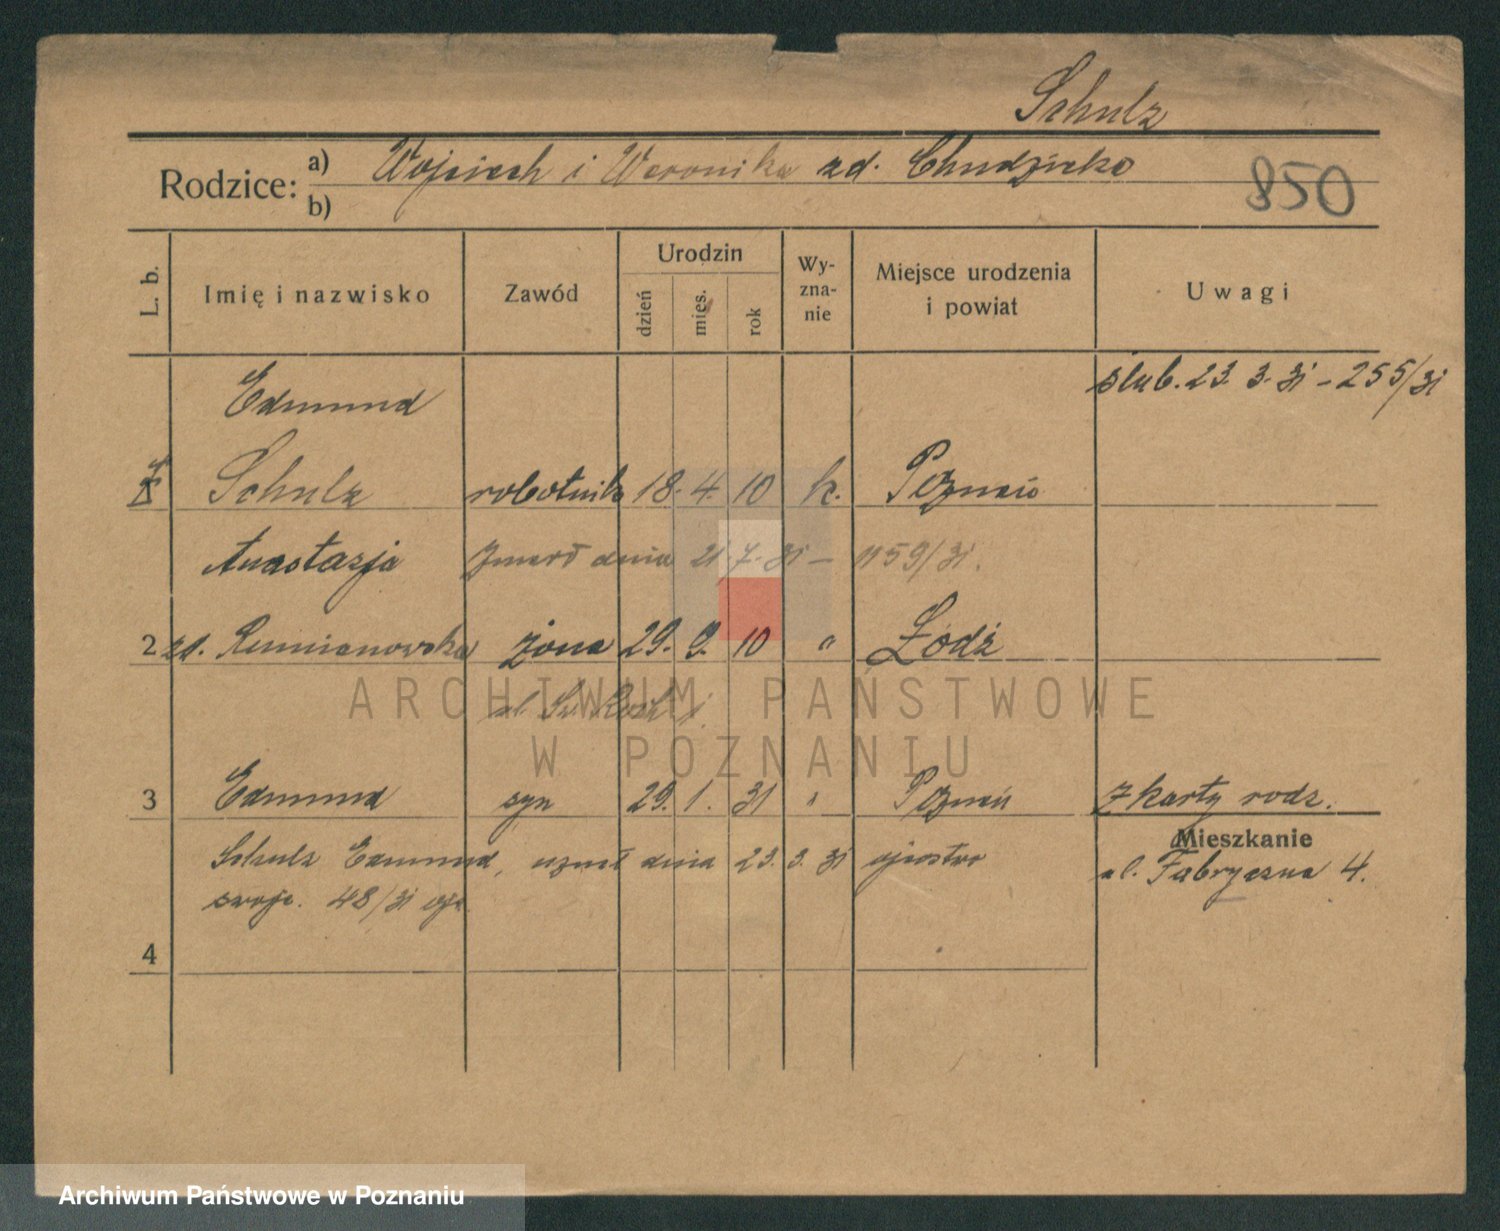 Schulz
Rodzice: a) Wojciech i Weronika zd. Chudzicka
b)
850
L. b. Imię i nazwisko Zawód Urodzin dzień mies. rok Wy-zna-nie Miejsce urodzenia i powiat Uwagi
Edmund ślub. 23. 3. 31 - 255/31
Schulz robotnik 18. 4. 10 k. Poznań
Anastazja Zmarł dnia 21. 7. 31 - 1159/31.
2 zd. Rumianowska żona 29. 9. 10 " Łódź
ul. Św. Roch
ARCHIWUM PAŃSTWOWE
W POZNANIU
3 Edmund syn 29. 1. 31 " Poznań z karty rodz.
Mieszkanie
Schulz Edmund, uznał dnia 23. 3. 31 ojcostwo ul. Fabryczna 4.
swoje. 48/31
4
Archiwum Państwowe w Poznaniu